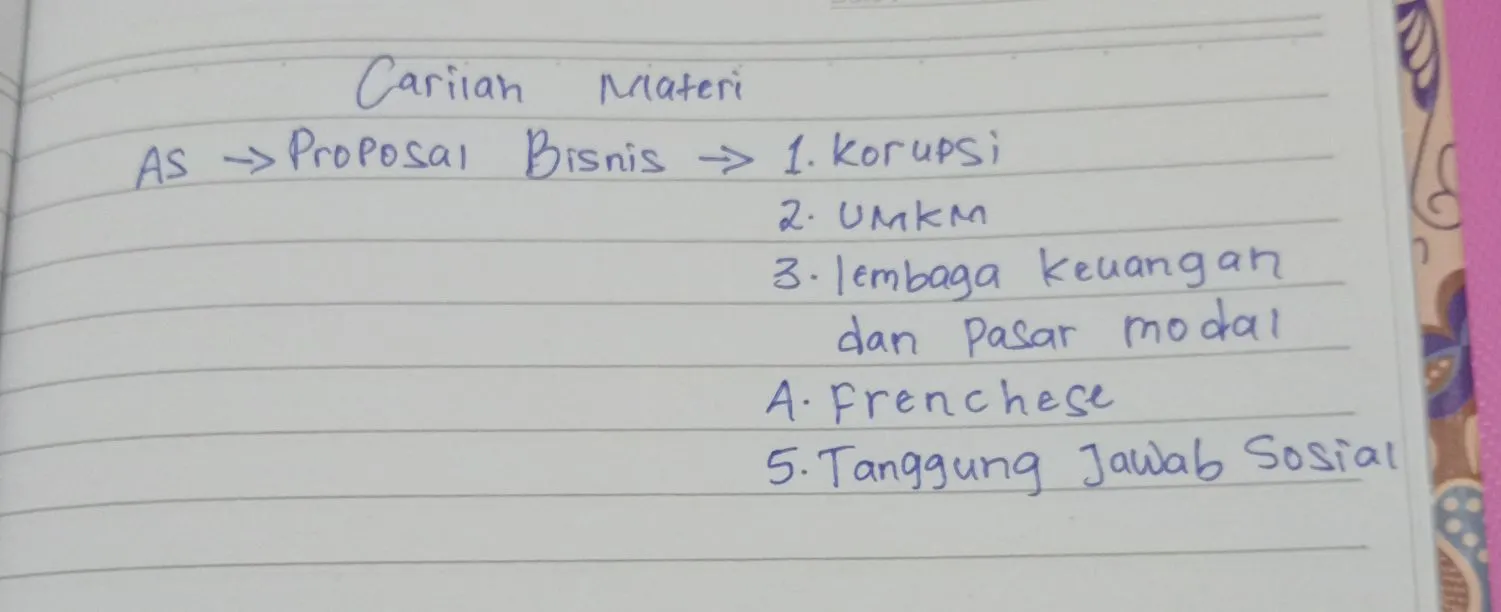 Cariian Materi
AS → Proposal Bisnis → 1. Korupsi
2. UMKM
3. lembaga keuangan
dan Pasar modal
4. Frenchese
5. Tanggung Jawab Sosial